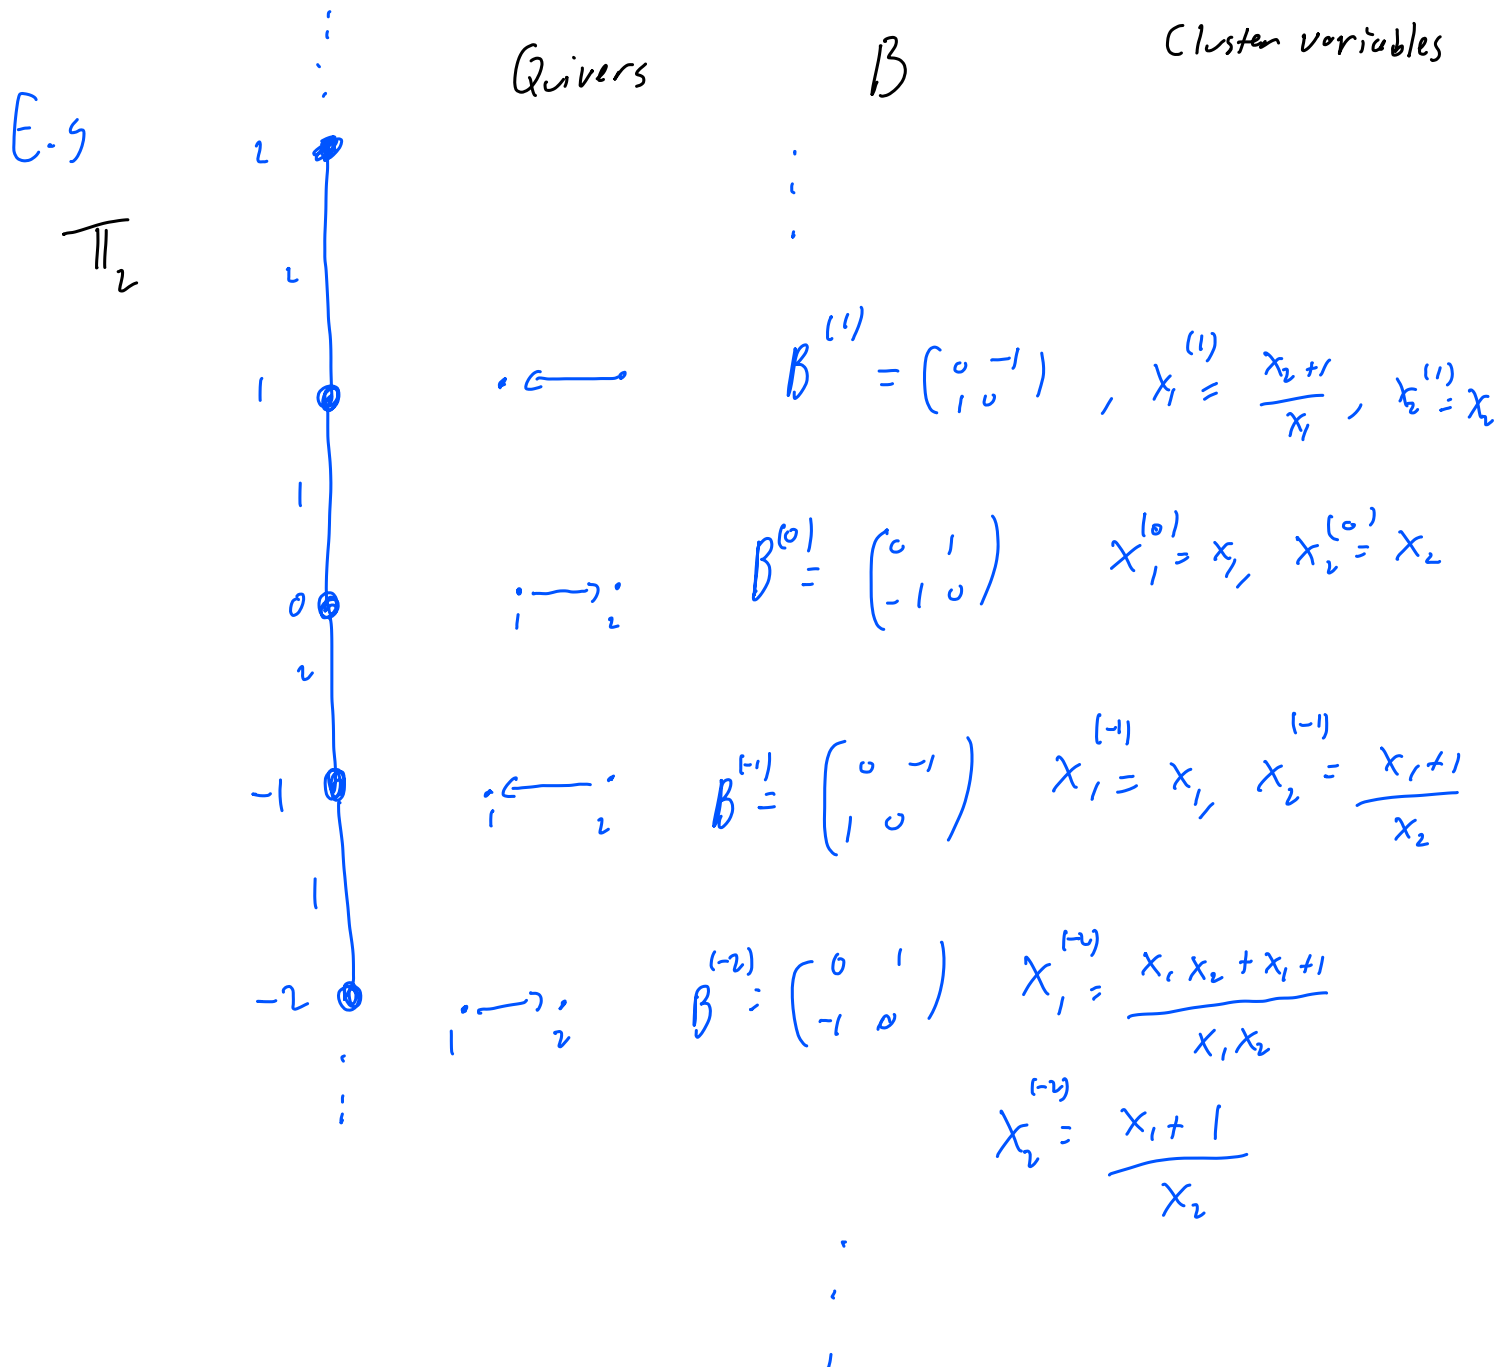 Quivers B Cluster variables
E.g
2
𝕋₂
2
1 B^{(1)} = \begin{pmatrix} 0 & -1 \\ 1 & 0 \end{pmatrix} , x_1^{(1)} = \frac{x_2+1}{x_1} , x_2^{(1)} = x_2
1
0 1 2 B^{(0)} = \begin{pmatrix} 0 & 1 \\ -1 & 0 \end{pmatrix} x_1^{(0)} = x_1, x_2^{(0)} = x_2
2
-1 1 2 B^{(-1)} = \begin{pmatrix} 0 & -1 \\ 1 & 0 \end{pmatrix} x_1^{(-1)} = x_1, x_2^{(-1)} = \frac{x_1+1}{x_2}
1
-2 1 2 B^{(-2)} = \begin{pmatrix} 0 & 1 \\ -1 & 0 \end{pmatrix} x_1^{(-2)} = \frac{x_1 x_2 + x_1 + 1}{x_1 x_2}
x_2^{(-2)} = \frac{x_1+1}{x_2}